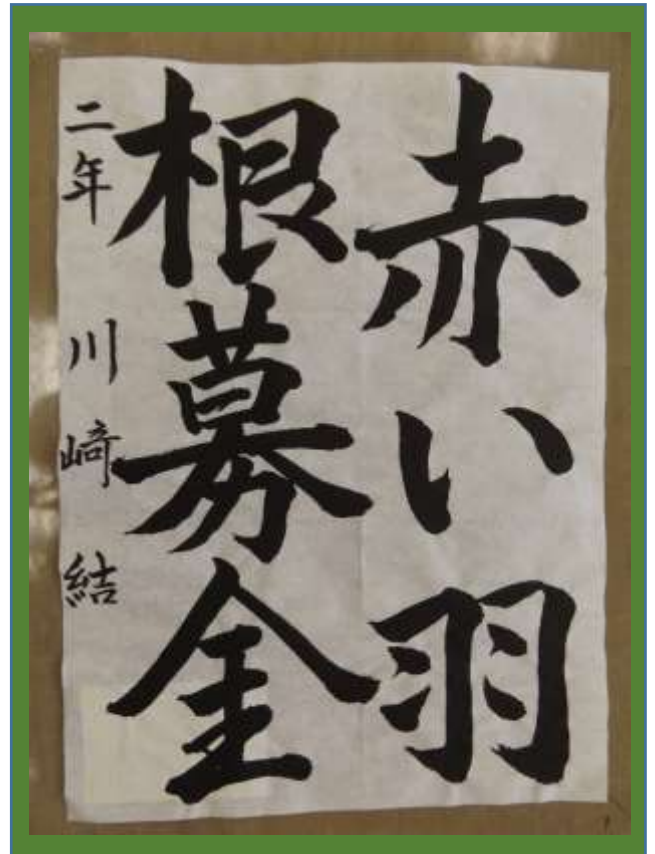 赤い羽
根募金
二年 川﨑 結